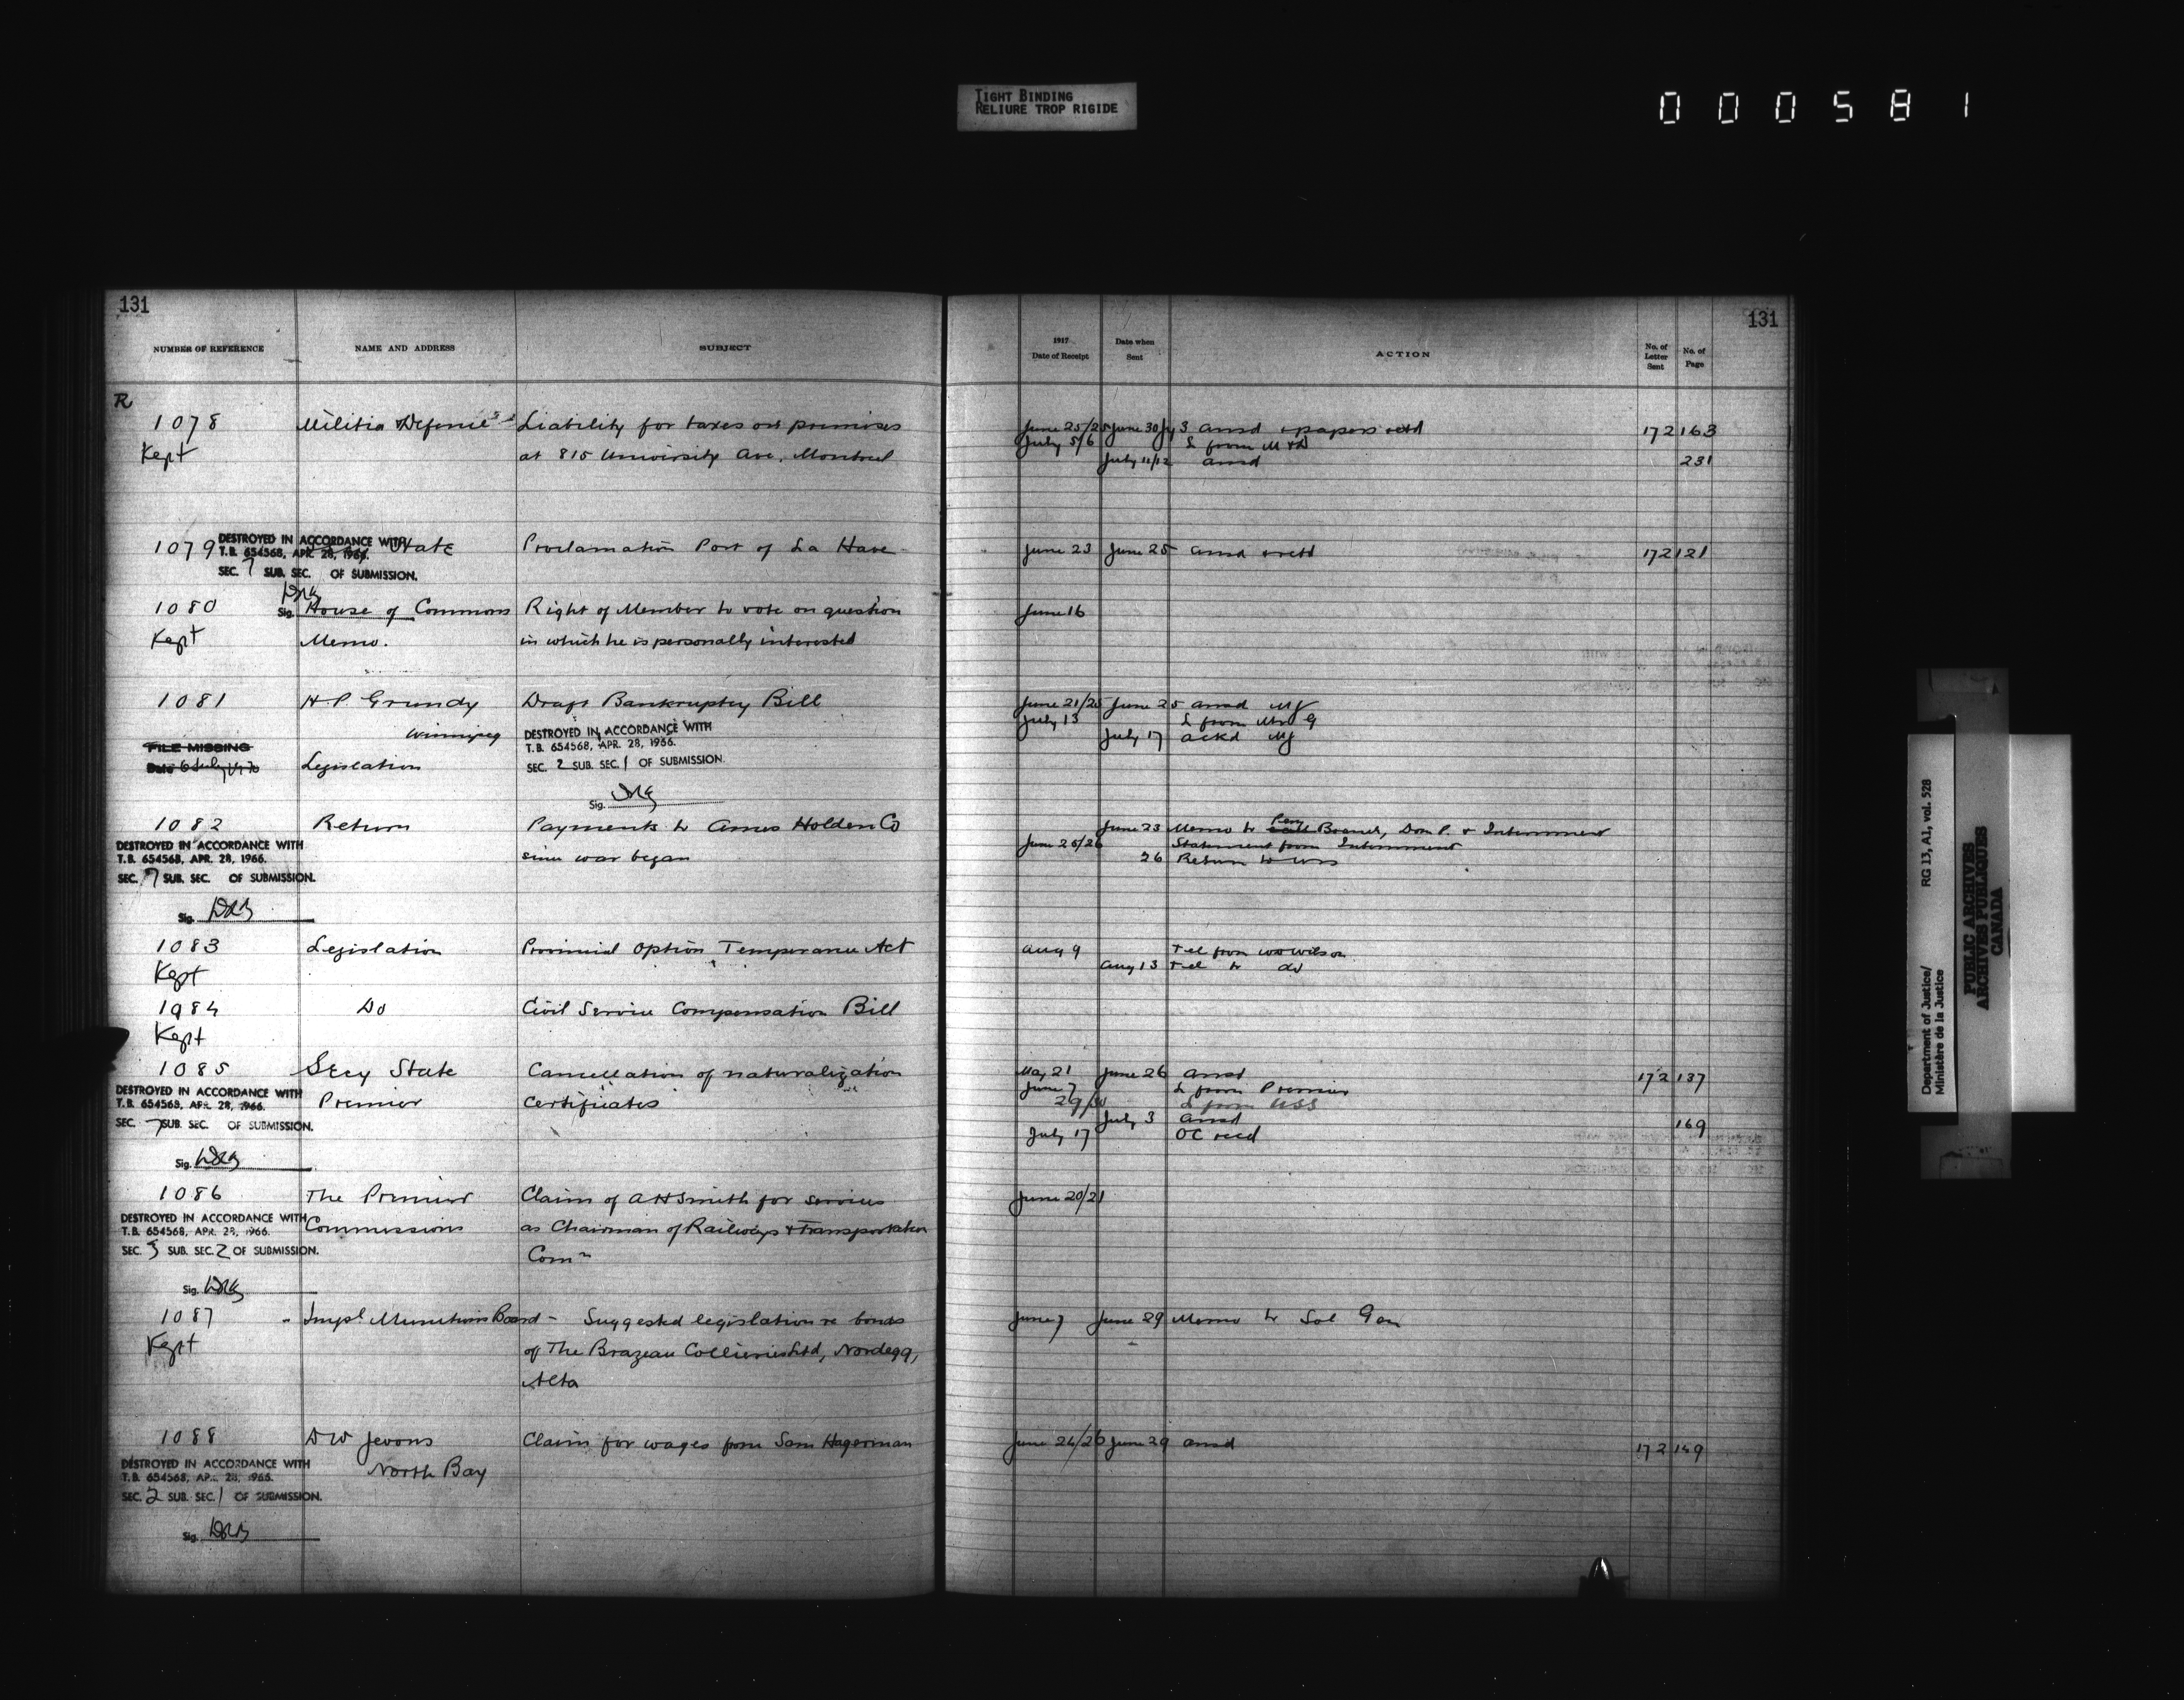 TIGHT BINDING
RELIURE TROP RIGIDE
000581
131
NUMBER OF REFERENCE NAME AND ADDRESS SUBJECT
R
1078 Militia & Defence Liability for taxes on premises
Kept at 815 University Ave, Montreal
1079 State Proclamation Port of La Have
DESTROYED IN ACCORDANCE WITH
T.B. 654568, APR. 28, 1966.
SEC. 7 SUB. SEC. OF SUBMISSION.
Sig.
1080 House of Commons Right of Member to vote on question
Kept Memo. in which he is personally interested
1081 H P Grundy Draft Bankruptcy Bill
Winnipeg
DESTROYED IN ACCORDANCE WITH
T.B. 654568, APR. 28, 1966.
SEC. 2 SUB. SEC. 1 OF SUBMISSION.
Sig.
FILE MISSING
Date 6 July
Legislation
1082 Return Payments to Ames Holden Co
since war began
DESTROYED IN ACCORDANCE WITH
T.B. 654568, APR. 28, 1966.
SEC. 7 SUB. SEC. OF SUBMISSION.
Sig.
1083 Legislation Provincial Option Temperance Act
Kept
1984 Do Civil Service Compensation Bill
Kept
1085 Secy State Cancellation of naturalization
Premier certificates
DESTROYED IN ACCORDANCE WITH
T.B. 654568, APR. 28, 1966.
SEC. 7 SUB. SEC. OF SUBMISSION.
Sig.
1086 The Premier Claim of A H Smith for services
Commissions as Chairman of Railways & Transportation
Comn
DESTROYED IN ACCORDANCE WITH
T.B. 654568, APR. 28, 1966.
SEC. 3 SUB. SEC. 2 OF SUBMISSION.
Sig.
1087 Impl Munitions Board - Suggested legislation re bonds
Kept of The Brazeau Collieries Ltd, Nordegg,
Alta
1088 D W Jevons Claim for wages from Sam Hagerman
North Bay
DESTROYED IN ACCORDANCE WITH
T.B. 654568, APR. 28, 1966.
SEC. 2 SUB. SEC. 1 OF SUBMISSION.
Sig.
131
1917 Date of Receipt Date when Sent ACTION No. of Letter Sent No. of Page
June 25/25 June 30 Jy 3 ansd & papers retd 172 163
July 5/6 L from M & D
July 11/12 ansd 231
June 23 June 25 ansd & retd 172 121
June 16
June 21/25 June 25 ansd MJ
July 13 L from Mr G
July 17 ackd MJ
June 23 Memo to Peny Branch, Dom P. & Internment
June 25/26 Statement from Internment
26 Return to
Aug 9 Tel from W O Wilson
Aug 13 Tel to do
May 21 June 26 ansd 172 137
June 7 L from Premier
29/30 L from USS
July 3 ansd 169
July 17 OC recd
June 20/21
June 7 June 29 Memo to Sol Gen
June 26/26 June 29 ansd 172 149
Department of Justice/
Ministère de la Justice
RG 13, A1, vol. 528
PUBLIC ARCHIVES
ARCHIVES PUBLIQUES
CANADA